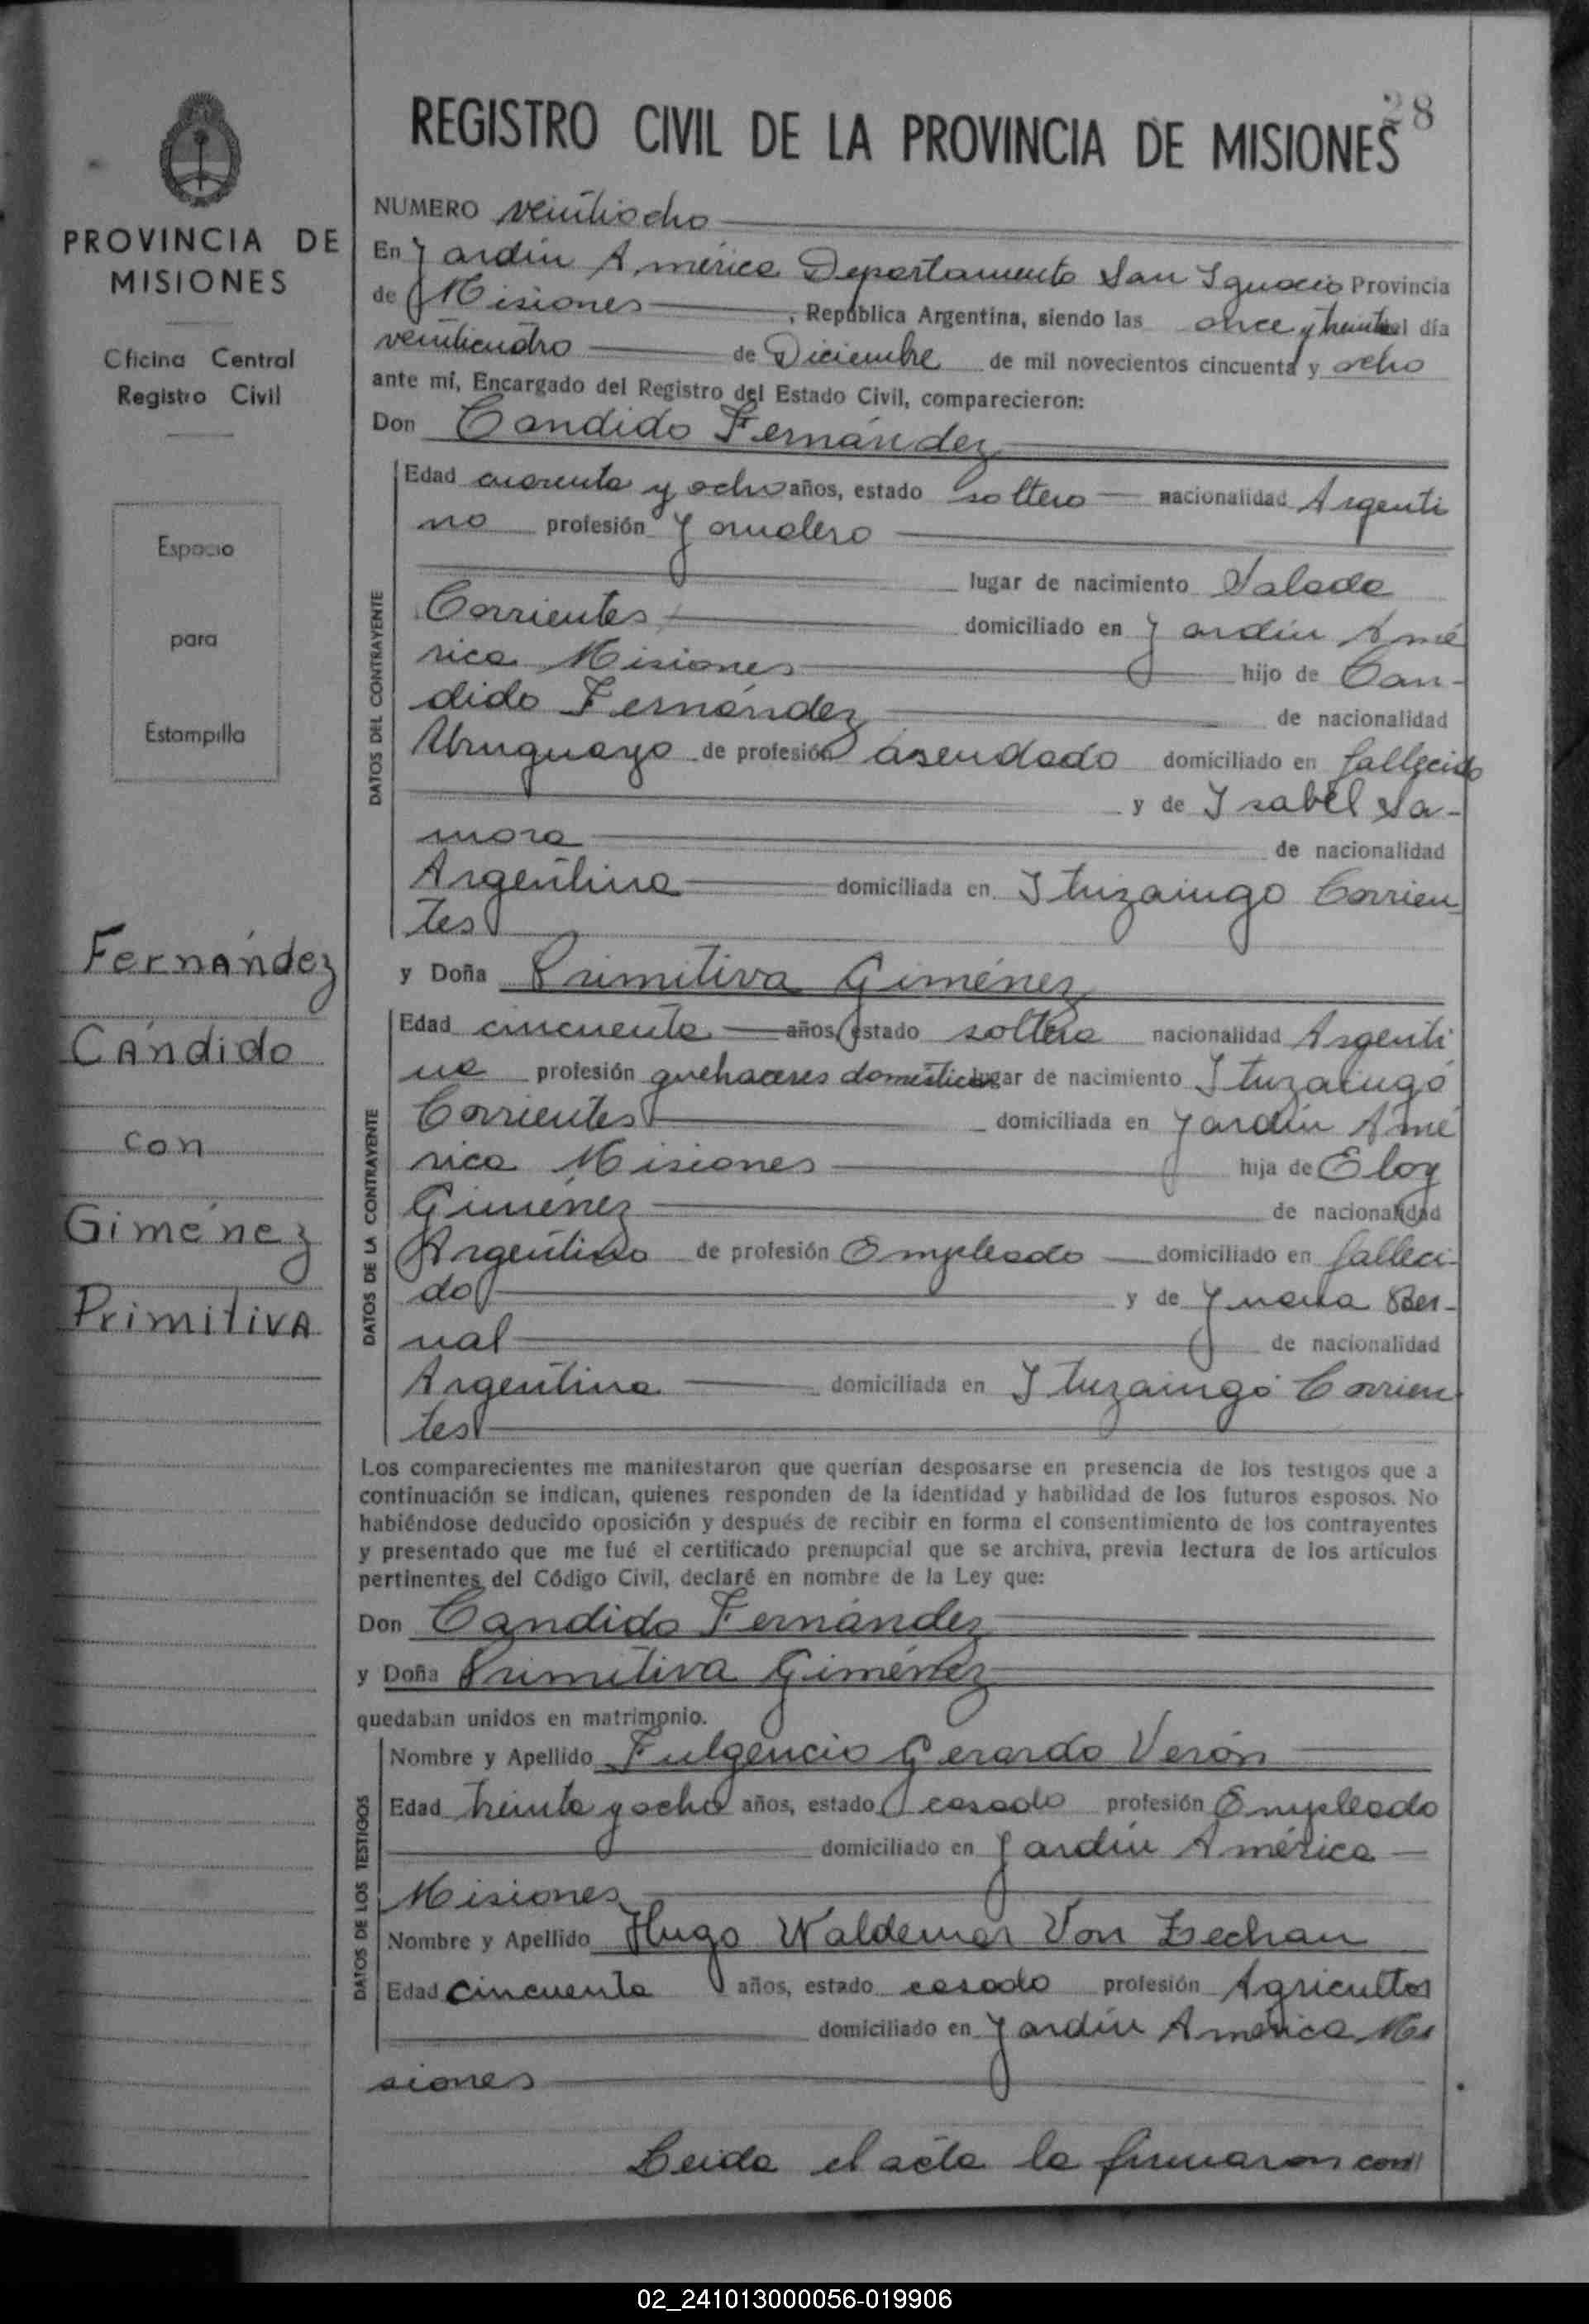 28
REGISTRO CIVIL DE LA PROVINCIA DE MISIONES
PROVINCIA DE
MISIONES
Oficina Central
Registro Civil
Espacio
para
Estampilla
Fernández
Cándido
con
Giménez
Primitiva
NUMERO veintiocho
En Jardín América Departamento San Ignacio Provincia
de Misiones, República Argentina, siendo las once y treinta el día
veinticuatro de Diciembre de mil novecientos cincuenta y ocho
ante mí, Encargado del Registro del Estado Civil, comparecieron:
Don Candido Fernández
DATOS DEL CONTRAYENTE
Edad cuarenta y ocho años, estado soltero nacionalidad Argenti
no profesión Jornalero
lugar de nacimiento Salada
Corrientes domiciliado en Jardín Amé
rica Misiones hijo de Can-
dido Fernández de nacionalidad
Uruguayo de profesión asendado domiciliado en fallecido
y de Isabel Sa-
mora de nacionalidad
Argentina domiciliada en Ituzaingo Corrien
tes
y Doña Primitiva Giménez
DATOS DE LA CONTRAYENTE
Edad cincuenta años, estado soltera nacionalidad Argenti
na profesión quehaceres domésticos lugar de nacimiento Ituzaingó
Corrientes domiciliada en Jardín Amé
rica Misiones hija de Eloy
Giménez de nacionalidad
Argentino de profesión Empleado domiciliado en falleci-
do y de Juana Ber-
nal de nacionalidad
Argentina domiciliada en Ituzaingó Corrien
tes
Los comparecientes me manifestaron que querían desposarse en presencia de los testigos que a
continuación se indican, quienes responden de la identidad y habilidad de los futuros esposos. No
habiéndose deducido oposición y después de recibir en forma el consentimiento de los contrayentes
y presentado que me fué el certificado prenupcial que se archiva, previa lectura de los artículos
pertinentes del Código Civil, declaré en nombre de la Ley que:
Don Candido Fernández
y Doña Primitiva Giménez
quedaban unidos en matrimonio.
DATOS DE LOS TESTIGOS
Nombre y Apellido Fulgencio Gerardo Verón
Edad treinta y ocho años, estado casado profesión Empleado
domiciliado en Jardín América
Misiones
Nombre y Apellido Hugo Waldemar Von Zechan
Edad cincuenta años, estado casado profesión Agricultor
domiciliado en Jardín América Mi
siones
Leida el acta la firmaron con
02_241013000056-019906